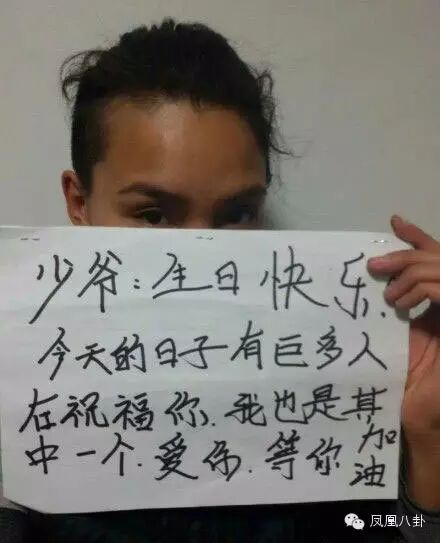 少爷:生日快乐.
今天的日子有巨多人
在祝福你.我也是其
中一个.爱你.等你加油
凤凰八卦